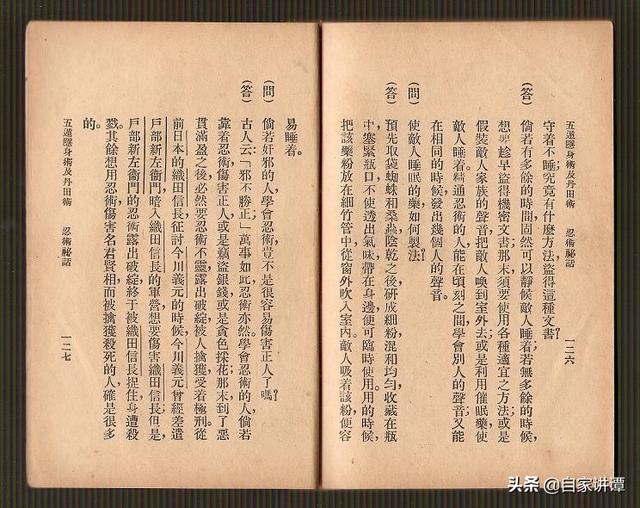 五遁隱身術及丹田術　忍術秘話　一二六
守着不睡，究竟有什麼方法盜得這種文書？
（答）倘若有多餘的時間，固然可以靜候敵人睡着；若無多餘的時候，
想要趁早盜得機密文書，那末須要使用各種適宜之方法；或是
假裝敵人家族的聲音，把敵人喚到室外去，或是利用催眠藥使
敵人睡着。精通忍術的人，能在頃刻之間，學會別人的聲音，又能
在相同的時候，發出幾個人的聲音。
（問）使敵人睡眠的藥，如何製法？
（答）預先取袋蜘蛛和桑蟲陰乾之後，研成細粉，混和均勻，收藏在瓶
中，塞緊瓶口，不使透出氣味，帶在身邊，便可臨時使用。用的時候，
把該藥粉放在細竹管中，從窗外吹入室內。敵人吸着該粉，便容
易睡着。
（問）倘若奸邪的人學會忍術，豈不是很容易傷害正人了嗎？
（答）古人云：「邪不勝正」萬事如此，忍術亦然。學會忍術的人，倘若
靠着忍術傷害正人，或是竊盜銀錢，或是貪色採花，那末到了惡
貫滿盈之後，必然要忍術不靈，露出破綻，被人擒獲，受着極刑。從
前日本的織田信長征討今川義元的時候，今川義元曾經差遣
戶部新左衞門，暗入織田信長的軍營，想要傷害織田信長，但是，
戶部新左衞門的忍術，露出破綻，終于被織田信長捉住，身遭殺
戮。其餘想用忍術傷害名君賢相，而被擒獲殺死的人，確是很多
的。
五遁隱身術及丹田術　忍術秘話　一二七
头条 @自家讲谭